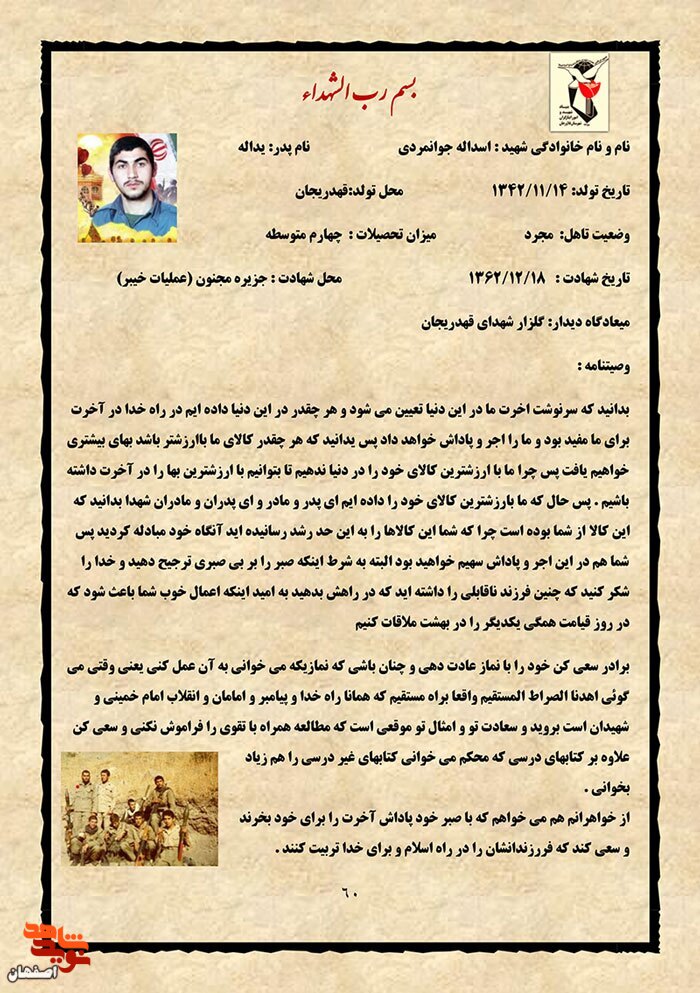 بسم رب الشهداء
نام و نام خانوادگی شهید : اسداله جوانمردی نام پدر: یداله
تاریخ تولد: ۱۳۴۲/۱۱/۱۴ محل تولد:قهدریجان
وضعیت تاهل: مجرد میزان تحصیلات : چهارم متوسطه
تاریخ شهادت : ۱۳۶۲/۱۲/۱۸ محل شهادت : جزیره مجنون (عملیات خیبر)
میعادگاه دیدار: گلزار شهدای قهدریجان
وصیتنامه :
بدانید که سرنوشت اخرت ما در این دنیا تعیین می شود و هر چقدر در این دنیا داده ایم در راه خدا در آخرت
برای ما مفید بود و ما را اجر و پاداش خواهد داد پس بدانید که هر چقدر کالای ما باارزشتر باشد بهای بیشتری
خواهیم یافت پس چرا ما با ارزشترین کالای خود را در دنیا ندهیم تا بتوانیم با ارزشترین بها را در آخرت داشته
باشیم . پس حال که ما بارزشترین کالای خود را داده ایم ای پدر و مادر و ای پدران و مادران شهدا بدانید که
این کالا از شما بوده است چرا که شما این کالاها را به این حد رشد رسانیده اید آنگاه خود مبادله کردید پس
شما هم در این اجر و پاداش سهیم خواهید بود البته به شرط اینکه صبر را بر بی صبری ترجیح دهید و خدا را
شکر کنید که چنین فرزند ناقابلی را داشته اید که در راهش بدهید به امید اینکه اعمال خوب شما باعث شود که
در روز قیامت همگی یکدیگر را در بهشت ملاقات کنیم
برادر سعی کن خود را با نماز عادت دهی و چنان باشی که نمازیکه می خوانی به آن عمل کنی یعنی وقتی می
گوئی اهدنا الصراط المستقیم واقعا براه مستقیم که همانا راه خدا و پیامبر و امامان و انقلاب امام خمینی و
شهیدان است بروید و سعادت تو و امثال تو موقعی است که مطالعه همراه با تقوی را فراموش نکنی و سعی کن
علاوه بر کتابهای درسی که محکم می خوانی کتابهای غیر درسی را هم زیاد
بخوانی .
از خواهرانم هم می خواهم که با صبر خود پاداش آخرت را برای خود بخرند
و سعی کند که فررزندانشان را در راه اسلام و برای خدا تربیت کنند .
۶۰
نوید شاهد
اصفهان